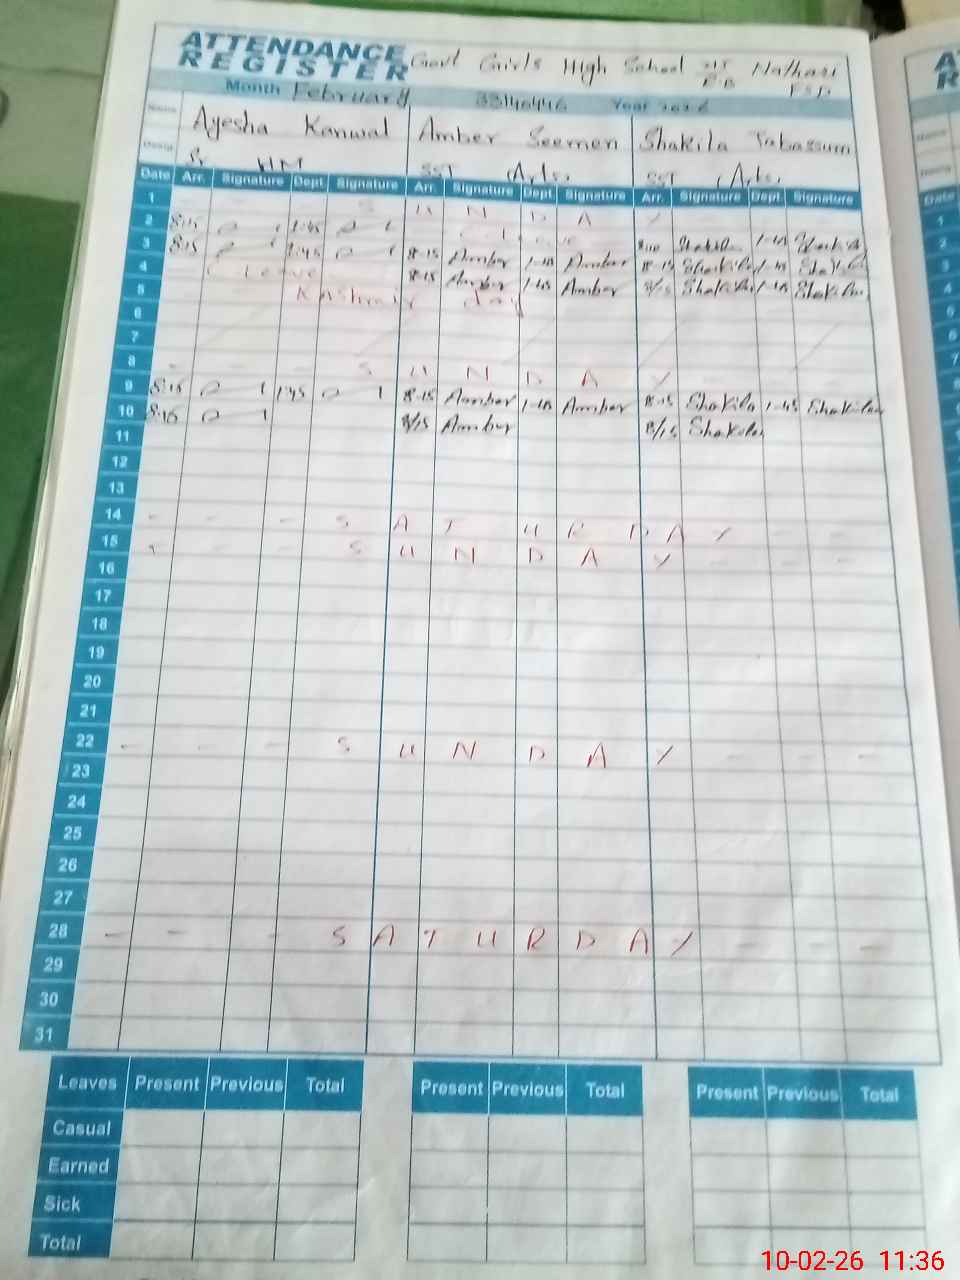 ATTENDANCE REGISTER Govt Girls High School Nathari
Month February 33140446 Year 2026
Name Ayesha Kanwal Amber Seemen Shakila Tabassum
Desig Sr HM SST (Arts) SST (Arts)
Date Arr. Signature Dept. Signature Arr. Signature Dept. Signature Arr. Signature Dept. Signature
1 - - - S U N D A Y
2 8:15 1:45 C Leave 8:10 Shakila 1-45 Shakila
3 8:15 1:45 8-15 Amber 1-45 Amber 8-15 Shakila 1-45 Shakila
4 C Leave 8-15 Amber 1-45 Amber 8/15 Shakila 1-45 Shakila
5 Kashmir day
6
7
8 - - - S U N D A Y
9 8:15 1:45 8-15 Amber 1-45 Amber 8-15 Shakila 1-45 Shakila
10 8:15 8/15 Amber 8/15 Shakila
11
12
13
14 - - - S A T U R D A Y - -
15 - - - S U N D A Y - - -
16
17
18
19
20
21
22 - - - S U N D A Y - - -
23
24
25
26
27
28 - - - S A T U R D A Y - -
29
30
31
Leaves Present Previous Total Present Previous Total Present Previous Total
Casual
Earned
Sick
Total
10-02-26 11:36